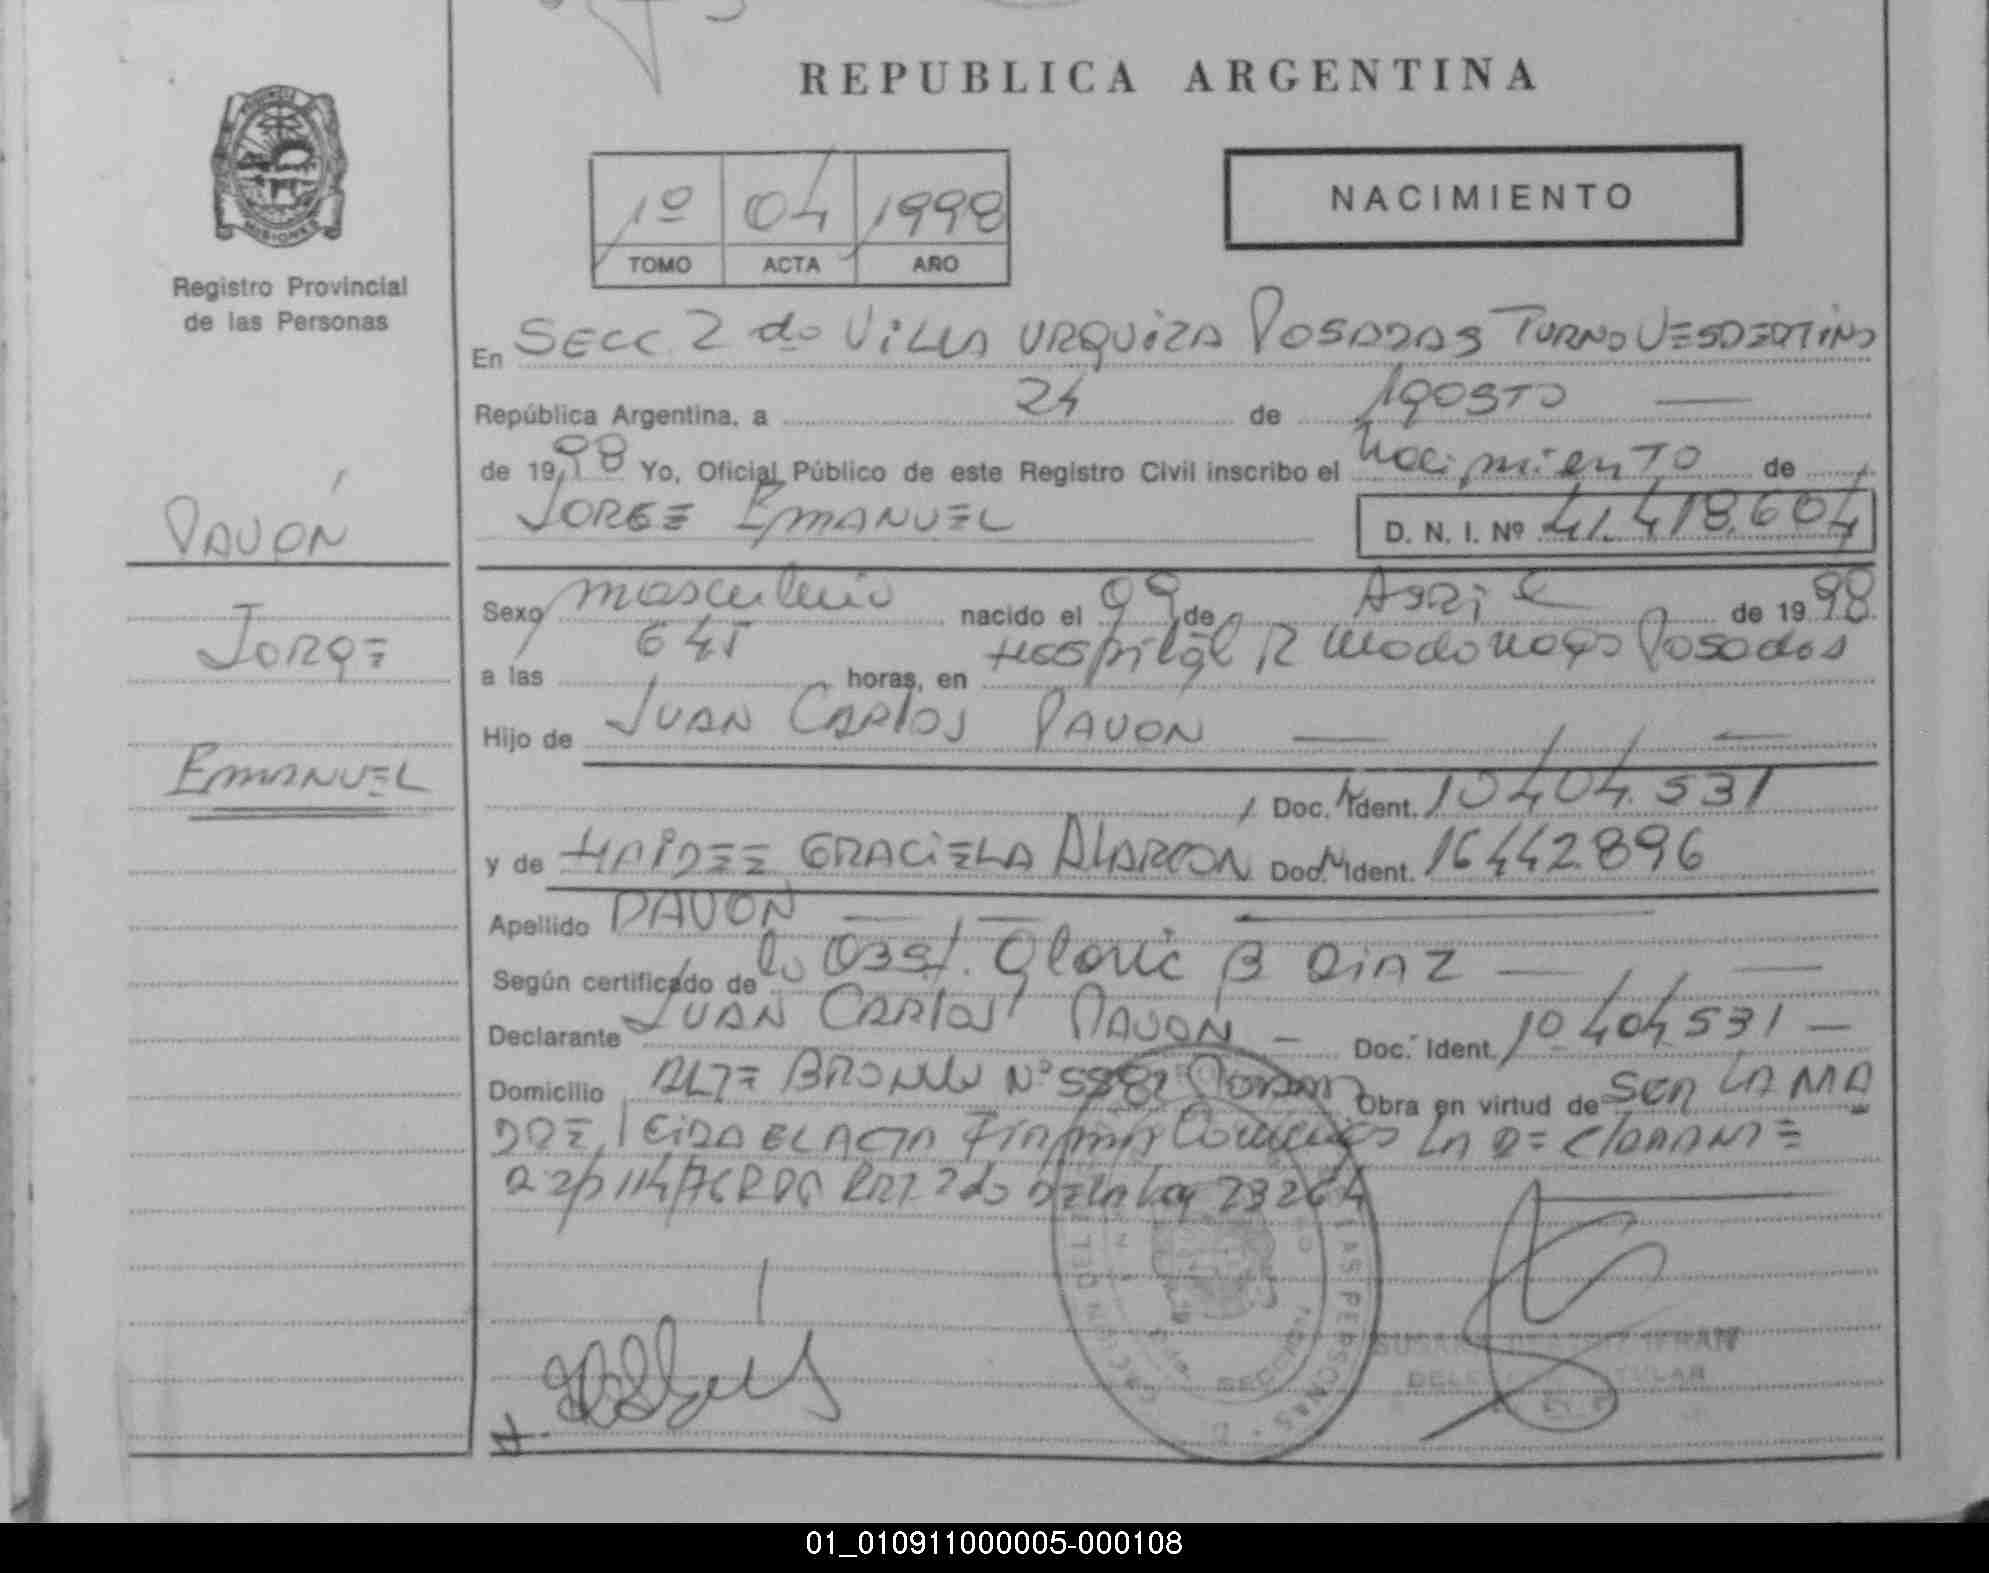 REPUBLICA ARGENTINA
1º 04 1998
TOMO ACTA AÑO
NACIMIENTO
MISIONES
Registro Provincial
de las Personas
PAVÓN
JORGE
EMANUEL
En SECC 2 do VILLA URQUIZA POSADAS TURNO VESPERTINO
República Argentina, a 24 de Agosto
de 1998 Yo, Oficial Público de este Registro Civil inscribo el nacimiento de
JORGE EMANUEL D. N. I. Nº 41.418.604
Sexo masculino nacido el 09 de Abril de 1998
a las 645 horas, en Hospital R Madariaga Posadas
Hijo de JUAN CARLOS PAVON
Doc. Ident. 10404.531
y de HAIDEE GRACIELA ALARCON Doc. Ident. 16442896
Apellido PAVÓN
Según certificado de la Obst. Gloria B Diaz
Declarante JUAN CARLOS PAVON Doc. Ident. 10.404531
Domicilio ALTE BROWN Nº Obra en virtud de SER LA MA
DRE, LEIDA EL ACTA FIRMA
2do DE LA Ley 23264
LAS PERSONAS
DELE TITULAR
01_010911000005-000108